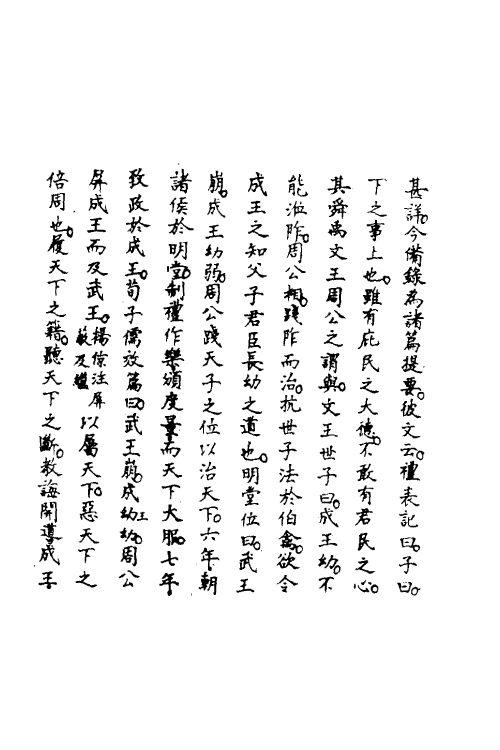 甚詳。今備錄為諸篇提要。彼文云。禮表記曰。子曰。
下之事上也。雖有庇民之大德。不敢有君民之心。
其舜禹文王周公之謂與。文王世子曰。成王幼。不
能涖阼。周公相。踐阼而治。抗世子法於伯禽。欲令
成王之知父子君臣長幼之道也。明堂位曰。武王
崩。成王幼弱。周公踐天子之位以治天下。六年。朝
諸侯於明堂。制禮作樂頒度量。而天下大服。七年。
致政於成王。荀子儒效篇曰。武王崩。成王幼。周公
屏成王而及武王。楊倞注屏蔽及繼以屬天下。惡天下之
倍周也。履天下之籍。聽天下之斷。教誨開導成王